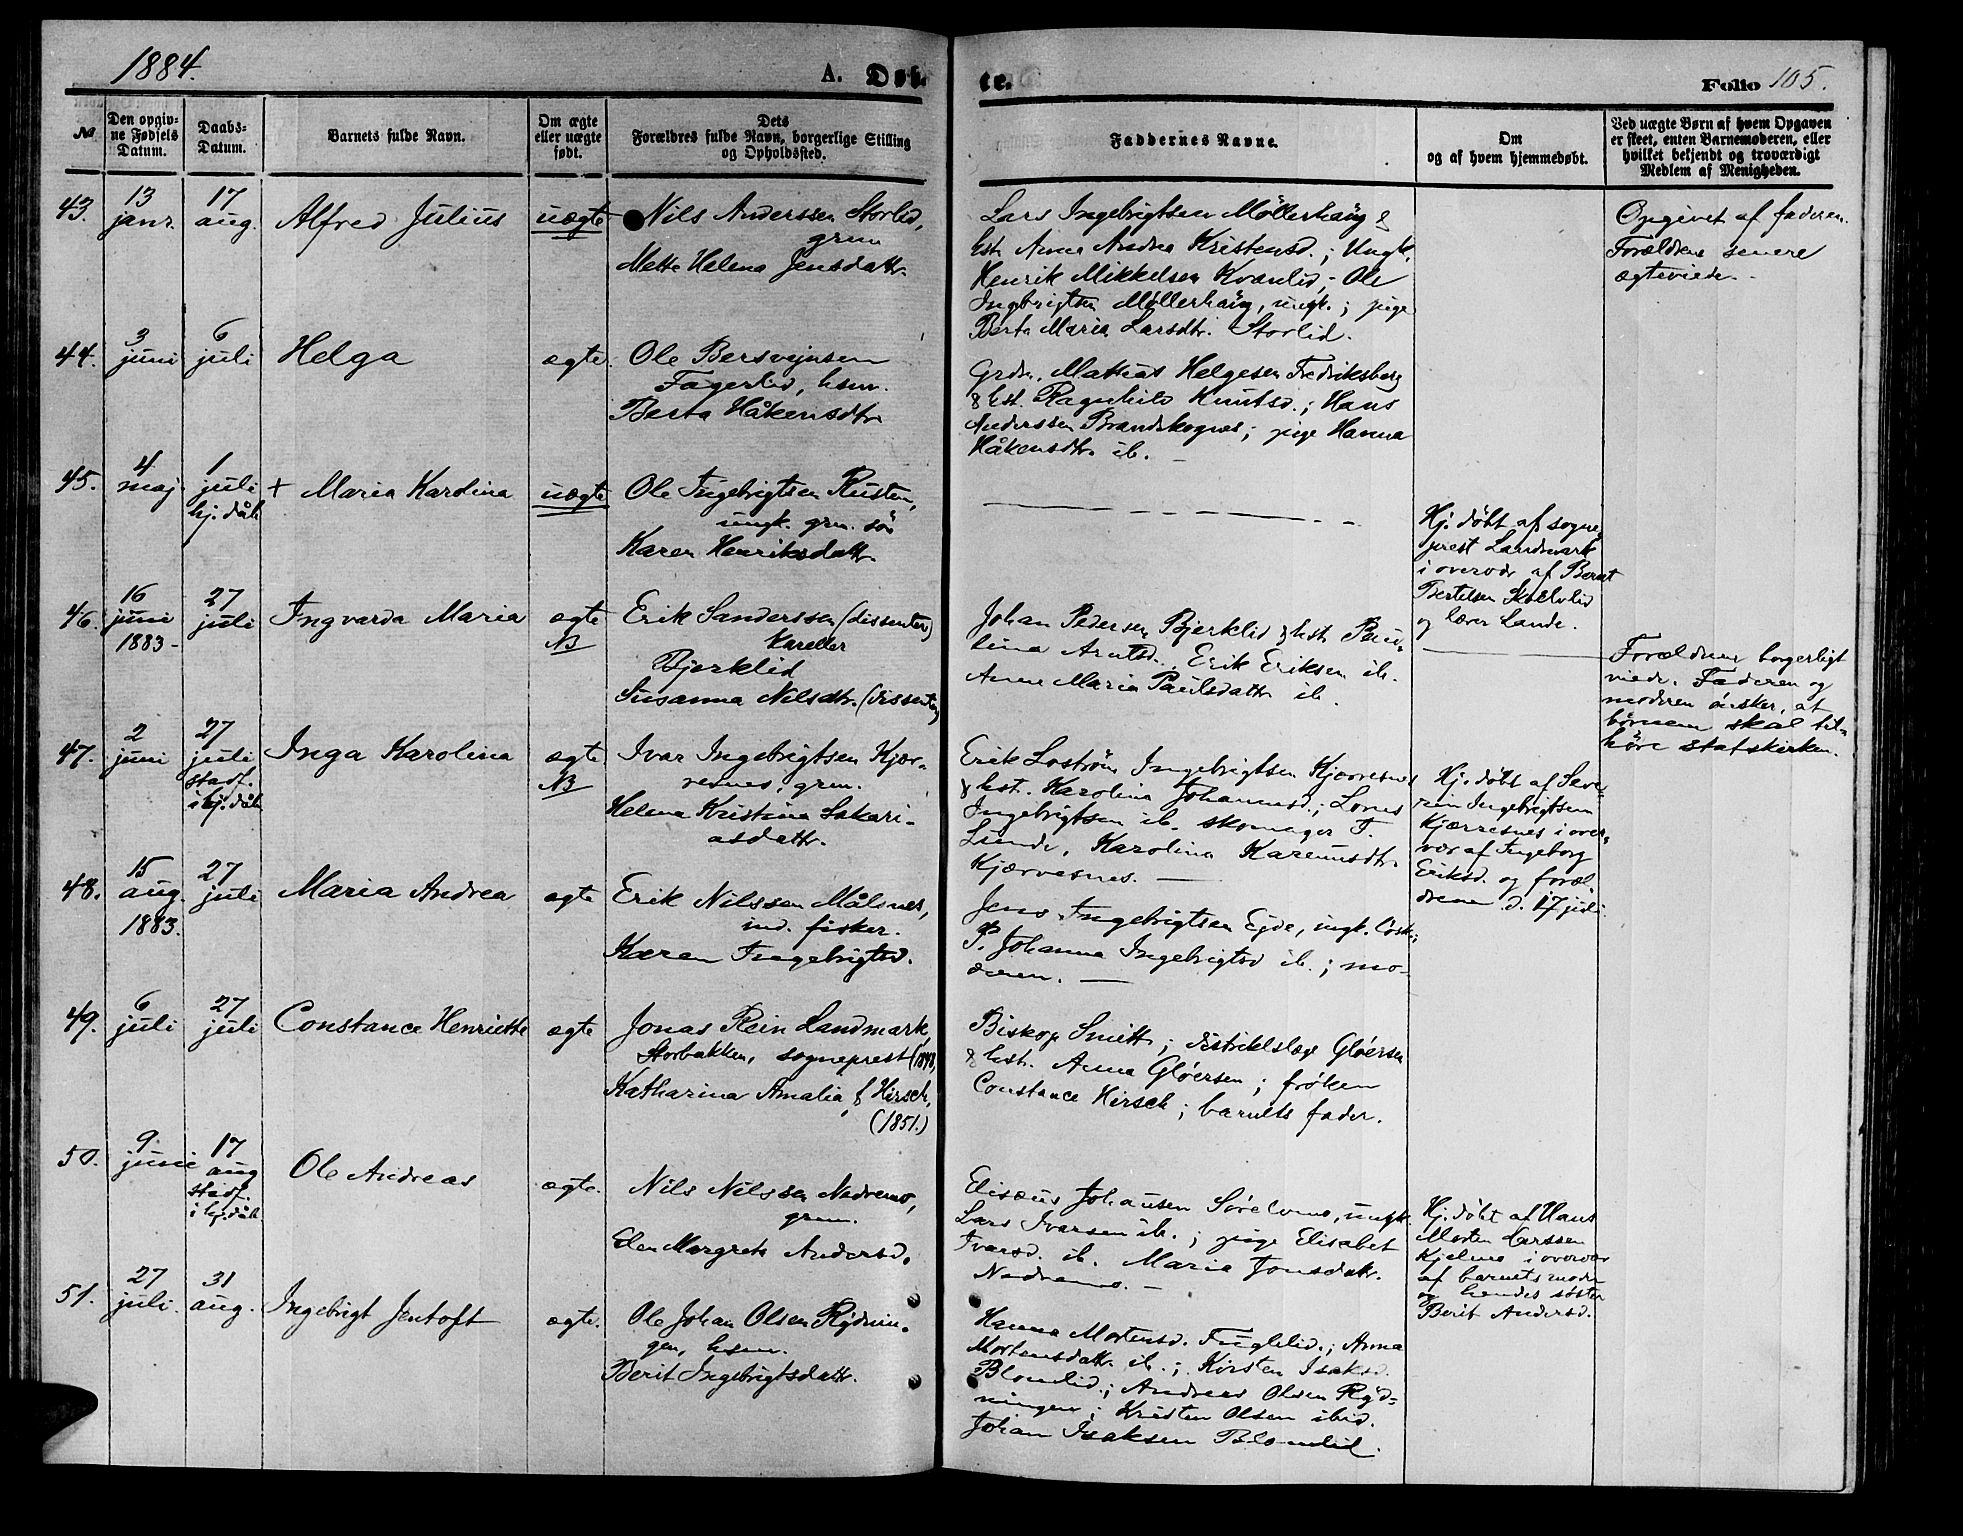 1884.
A. Døb-
te.
Folio 105.
№
Den opgiv-
ne Fødsels
Datum.
Daabs-
Datum.
Barnets fulde Navn.
Om ægte
eller uægte
født.
Dets
Forældres fulde Navn, borgerlige Stilling
og Opholdssted.
Faddernes Navne.
Om
og af hvem hjemmedøbt.
Ved uægte Børn af hvem Opgaven
er skeet, enten Barnemoderen, eller
hvilket bekjendt og troværdigt
Medlem af Menigheden.
43.
13
janr.
17
aug.
Alfred Julius
uægte
Nils Anderssen Storlid,
grm
Mette Helena Jensdattr.
Lars Ingebrigtsen Möllerhaüg &
hst. Anne Andrea Kristensd.; Ungk.
Henrik Mikkelsen Kvænlid; Ole
Ingebrigtsen Möllerhaüg, ungk.; pige
Berta Maria Larsdtr. Storlid.
Opgivet af faderen.
Forældrene senere
ægteviede.
44.
3
juni
6
juli
Helga
ægte
Ole Bersvejnsen
Fagerlid, hsm.
Berta Håkensdtr
Grdm. Mathias Helgesen Fredriksberg
& hst. Ragnhild Knutsd.; Hans
Anderssen Brandskognes; pige Hanna
Håkensdtr. ib.
45.
4
maj
1
juli
hj. dåb
+ Maria Karolina
uægte
Ole Ingebrigtsen Rusten,
ungk. grm. sön
Karen Henriksdattr
Hj. döbt af sogne-
prest Landmark
i overvær af Bernt
Bertelsen Kolvlid
og lærer Lande.
46.
16
juni
1883
27
juli
Ingvarda Maria
ægte
NB
Erik Sanderssen (dissenter)
Bjerklid
Susanna Nilsdtr. (dissenter)
Johan Pedersen Bjerklid & hst. Pau-
lina Arntsd., Erik Eriksen ib.
Anne Maria Paulsdattr ib.
Forældrene borgerligt
viede. Faderen og
moderen önsker, at
börnene skal til-
höre statskirken.
47.
2
juni
27
juli
stadf.
i hj. dåb
Inga Karolina
ægte
NB
Ivar Ingebrigtsen Kjær-
resnes, grm.
Helena Kristina Sakari-
asdattr.
Erik Loström Ingebrigtsen Kjærresnes
& hst. Karolina Johannesd.;
Ingebrigtsen ib. skomager T.
Lunde, Karolina Karenusdtr
Kjærresnes.
Hj. döbt af Seve-
rin Ingebrigtsen
Kjærresnes i over-
vær af Ingeborg
Eriksd. og foræl-
drene d. 17 juli.
48.
15
aug.
1883.
27
juli
Maria Andrea
ægte
Erik Nilssen Målsnes,
ind. fisker.
Karen Ingebrigtsd.
Jens Ingebrigtsen Ejde, ungk. löskr;
P. Johanna Ingebrigtsd ib.; mo-
deren.
49.
6
juli
27
juli
Constance Henriette
ægte
Jonas Rein Landmark,
Storbakken, sogneprest
Katharina Amalia, f. Hirsch,
(1851.)
Biskop Smitt; distriktslæge Glöersen
& hst. Anna Glöersen; fröken
Constance Hirsch; barnets fader.
50.
9.
juni
17
aug
stadf.
i hj. dåb
Ole Andreas
ægte.
Nils Nilssen Nedremo,
grm.
Elen Margrete Andersd.
Elisæus Johansen Sörelvmo, ungk.
Lars Ivarsen ib.; pige Elisabet
Ivarsd. ib. Maria Jonsdatr.
Nedremo.
Hj. döbt af Hans
Morten Larssen
Kjelmo i overvær
af barnets moder
og hendes söster
Berit Andersd.
51.
27
juli.
31
aug.
Ingebrigt Jentoft
ægte.
Ole Johan Olsen Rydnin-
gen, hsm.
Berit Ingebrigtsdattr.
Hanna Mortensd. Fuglelid.; Anna
Mortensdattr ib.; Kirsten Isaksd.
Blomlid.; Andreas Olsen Ryd-
ningen; Kristen Olsen ibid.
Johan Isaksen Blomlid.